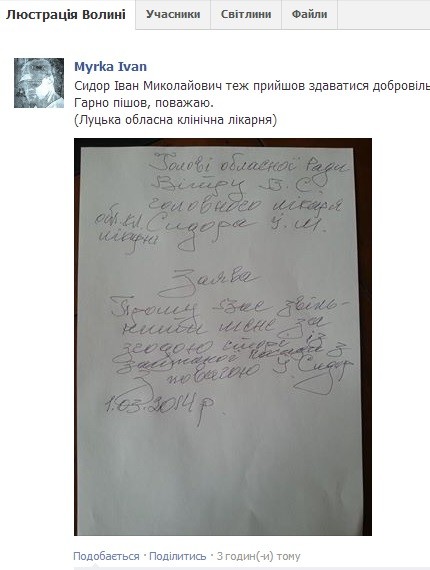 Люстрація Волині Учасники Світлини Файли
Myrka Ivan
Сидор Іван Миколайович теж прийшов здаватися добровіль
Гарно пішов, поважаю.
(Луцька обласна клінічна лікарня)
Голові обласної ради
Вітру В. С.
головного лікаря
обл. кл. Сидора І. М.
лікарні
Заява
Прошу Вас звіль-
нити мене за
згодою сторін із
займаної посади
З повагою І. Сидор
1.03.2014 р.
Подобається · Поділитись · 3 годин(-и) тому